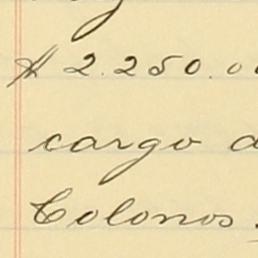 $ 2.250.00
cargo a
Colonos.